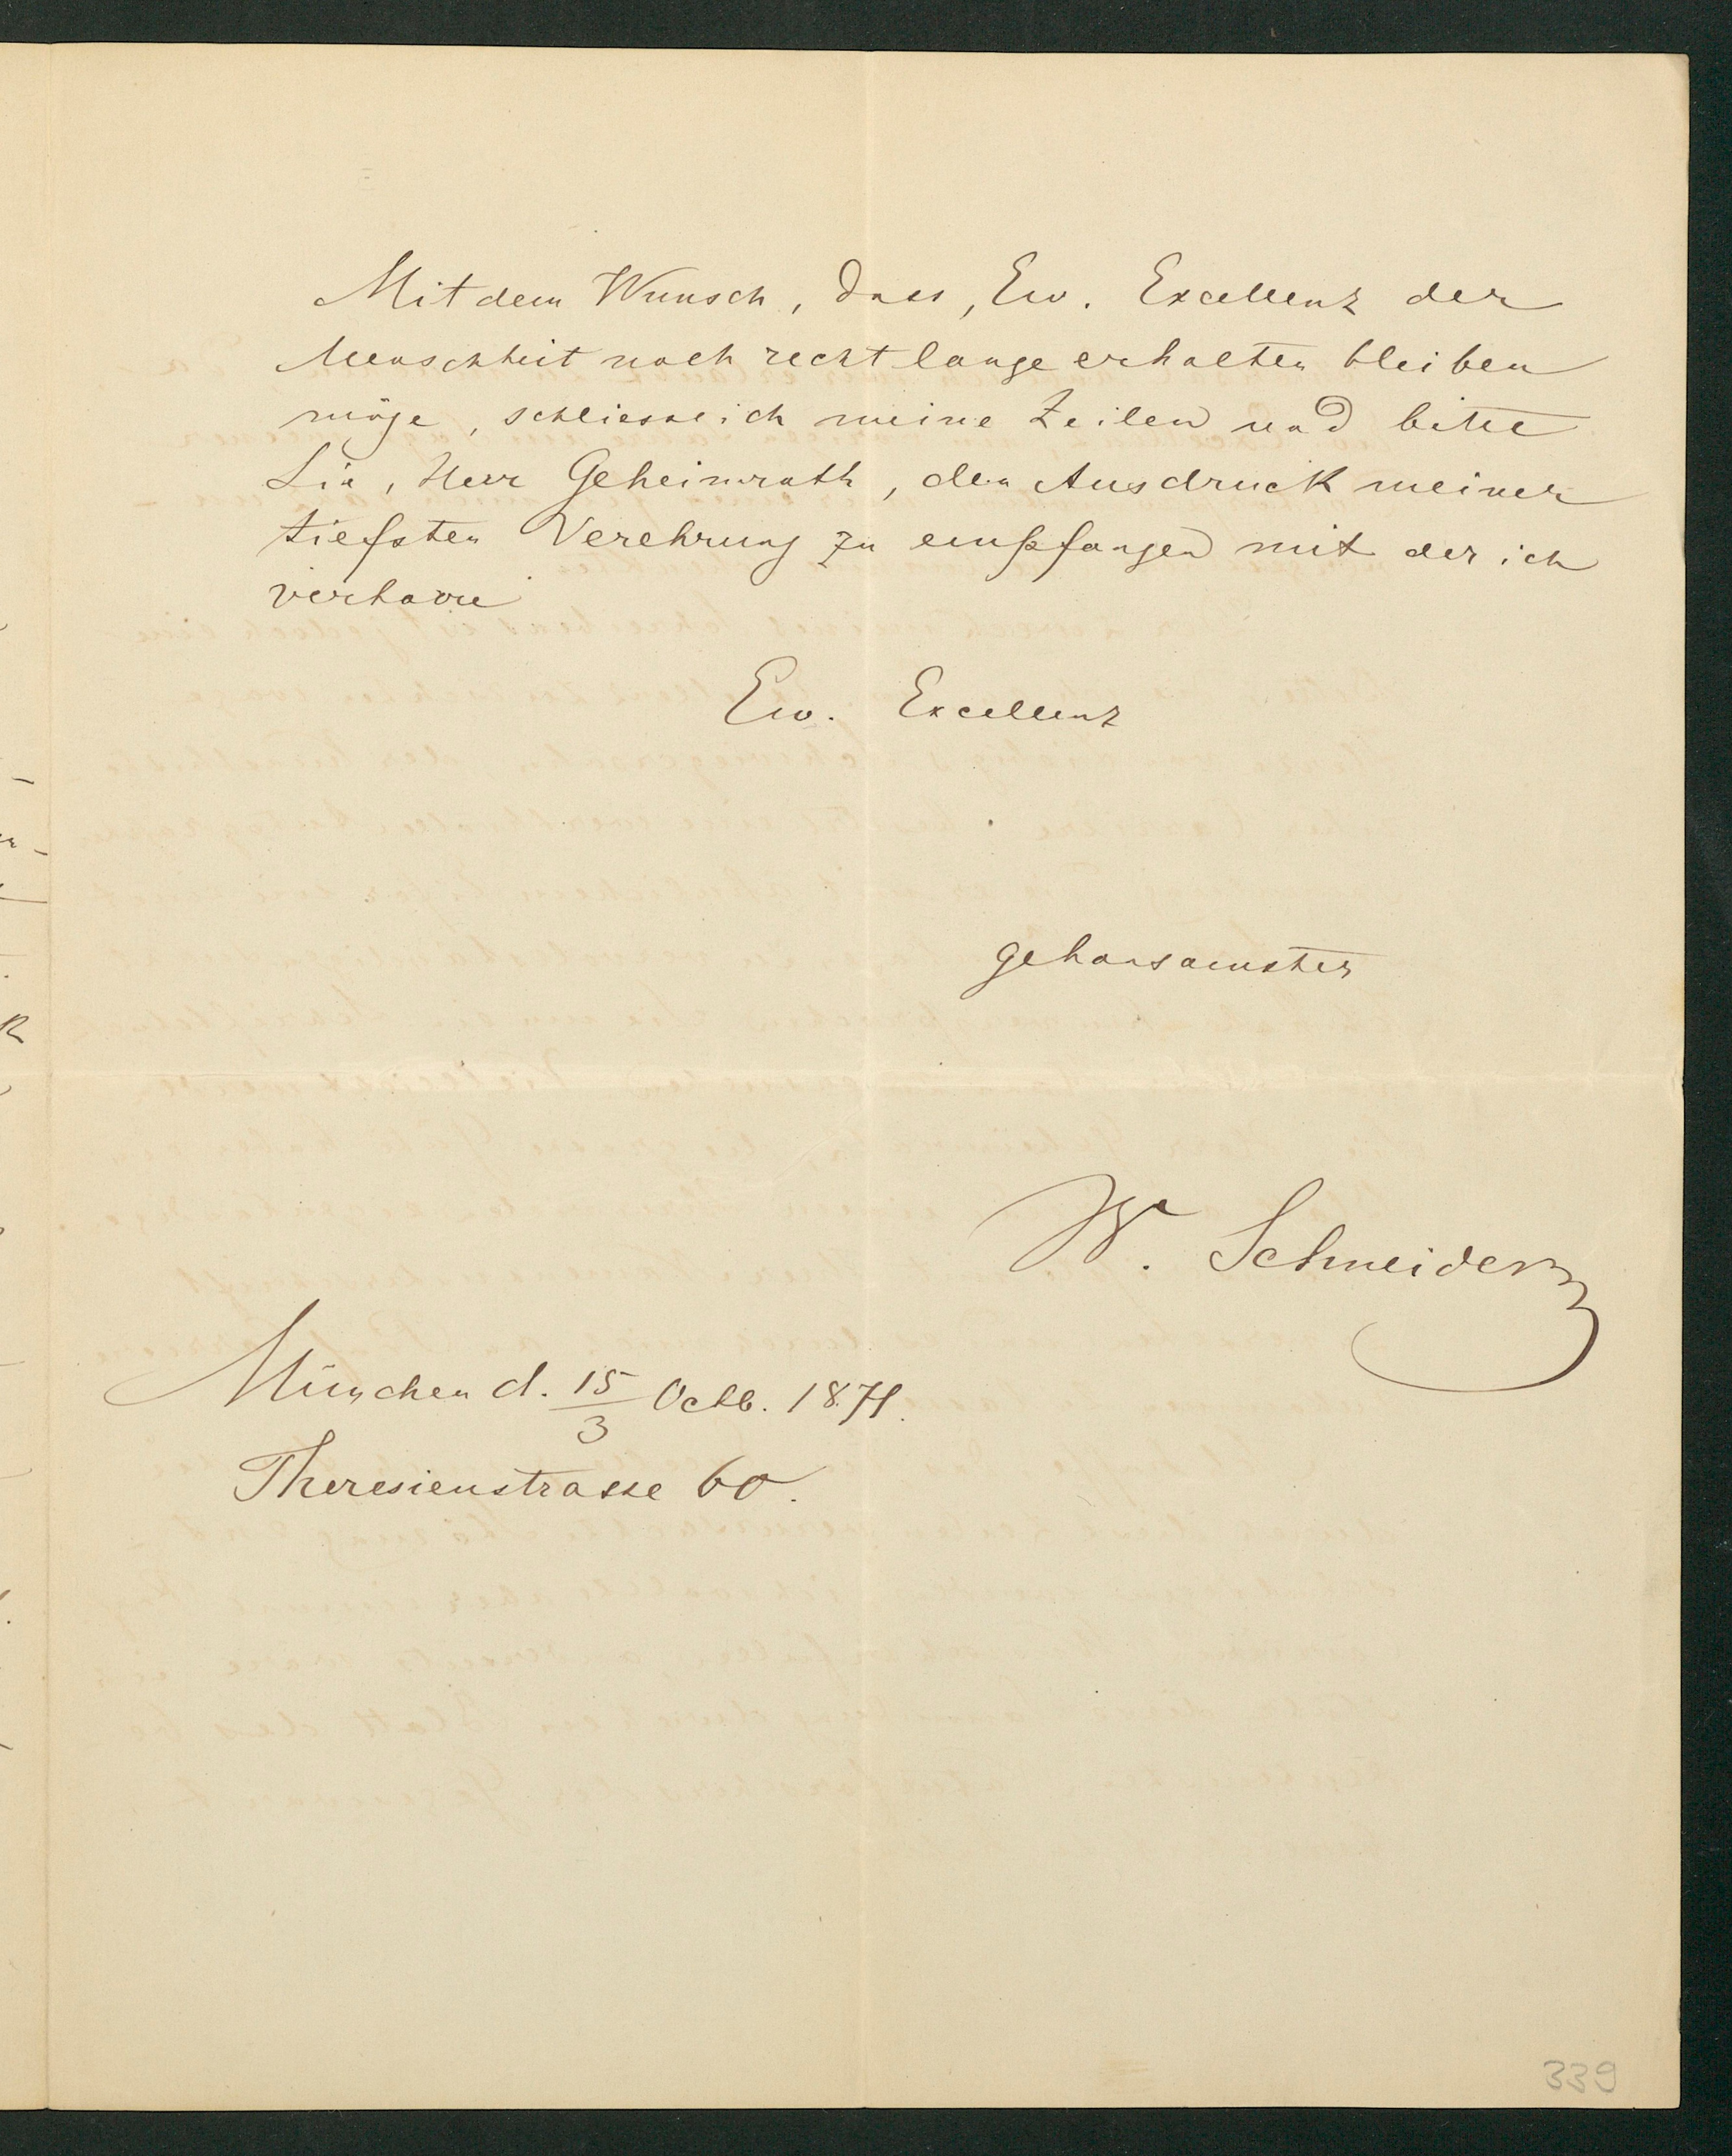 Mit dem Wunsch, dass, Ew. Excellenz der
Menschheit noch recht lange erhalten bleiben
möge, schliesse ich meine Zeilen und bitte
Sie, Herr Geheimrath, den Ausdruck meiner
tiefsten Verehrung zu empfangen mit der ich
verharre
Ew. Excellenz
gehorsamster
W. Schneider
München d. 15/3 Octb. 1871.
Theresienstrasse 60.
339